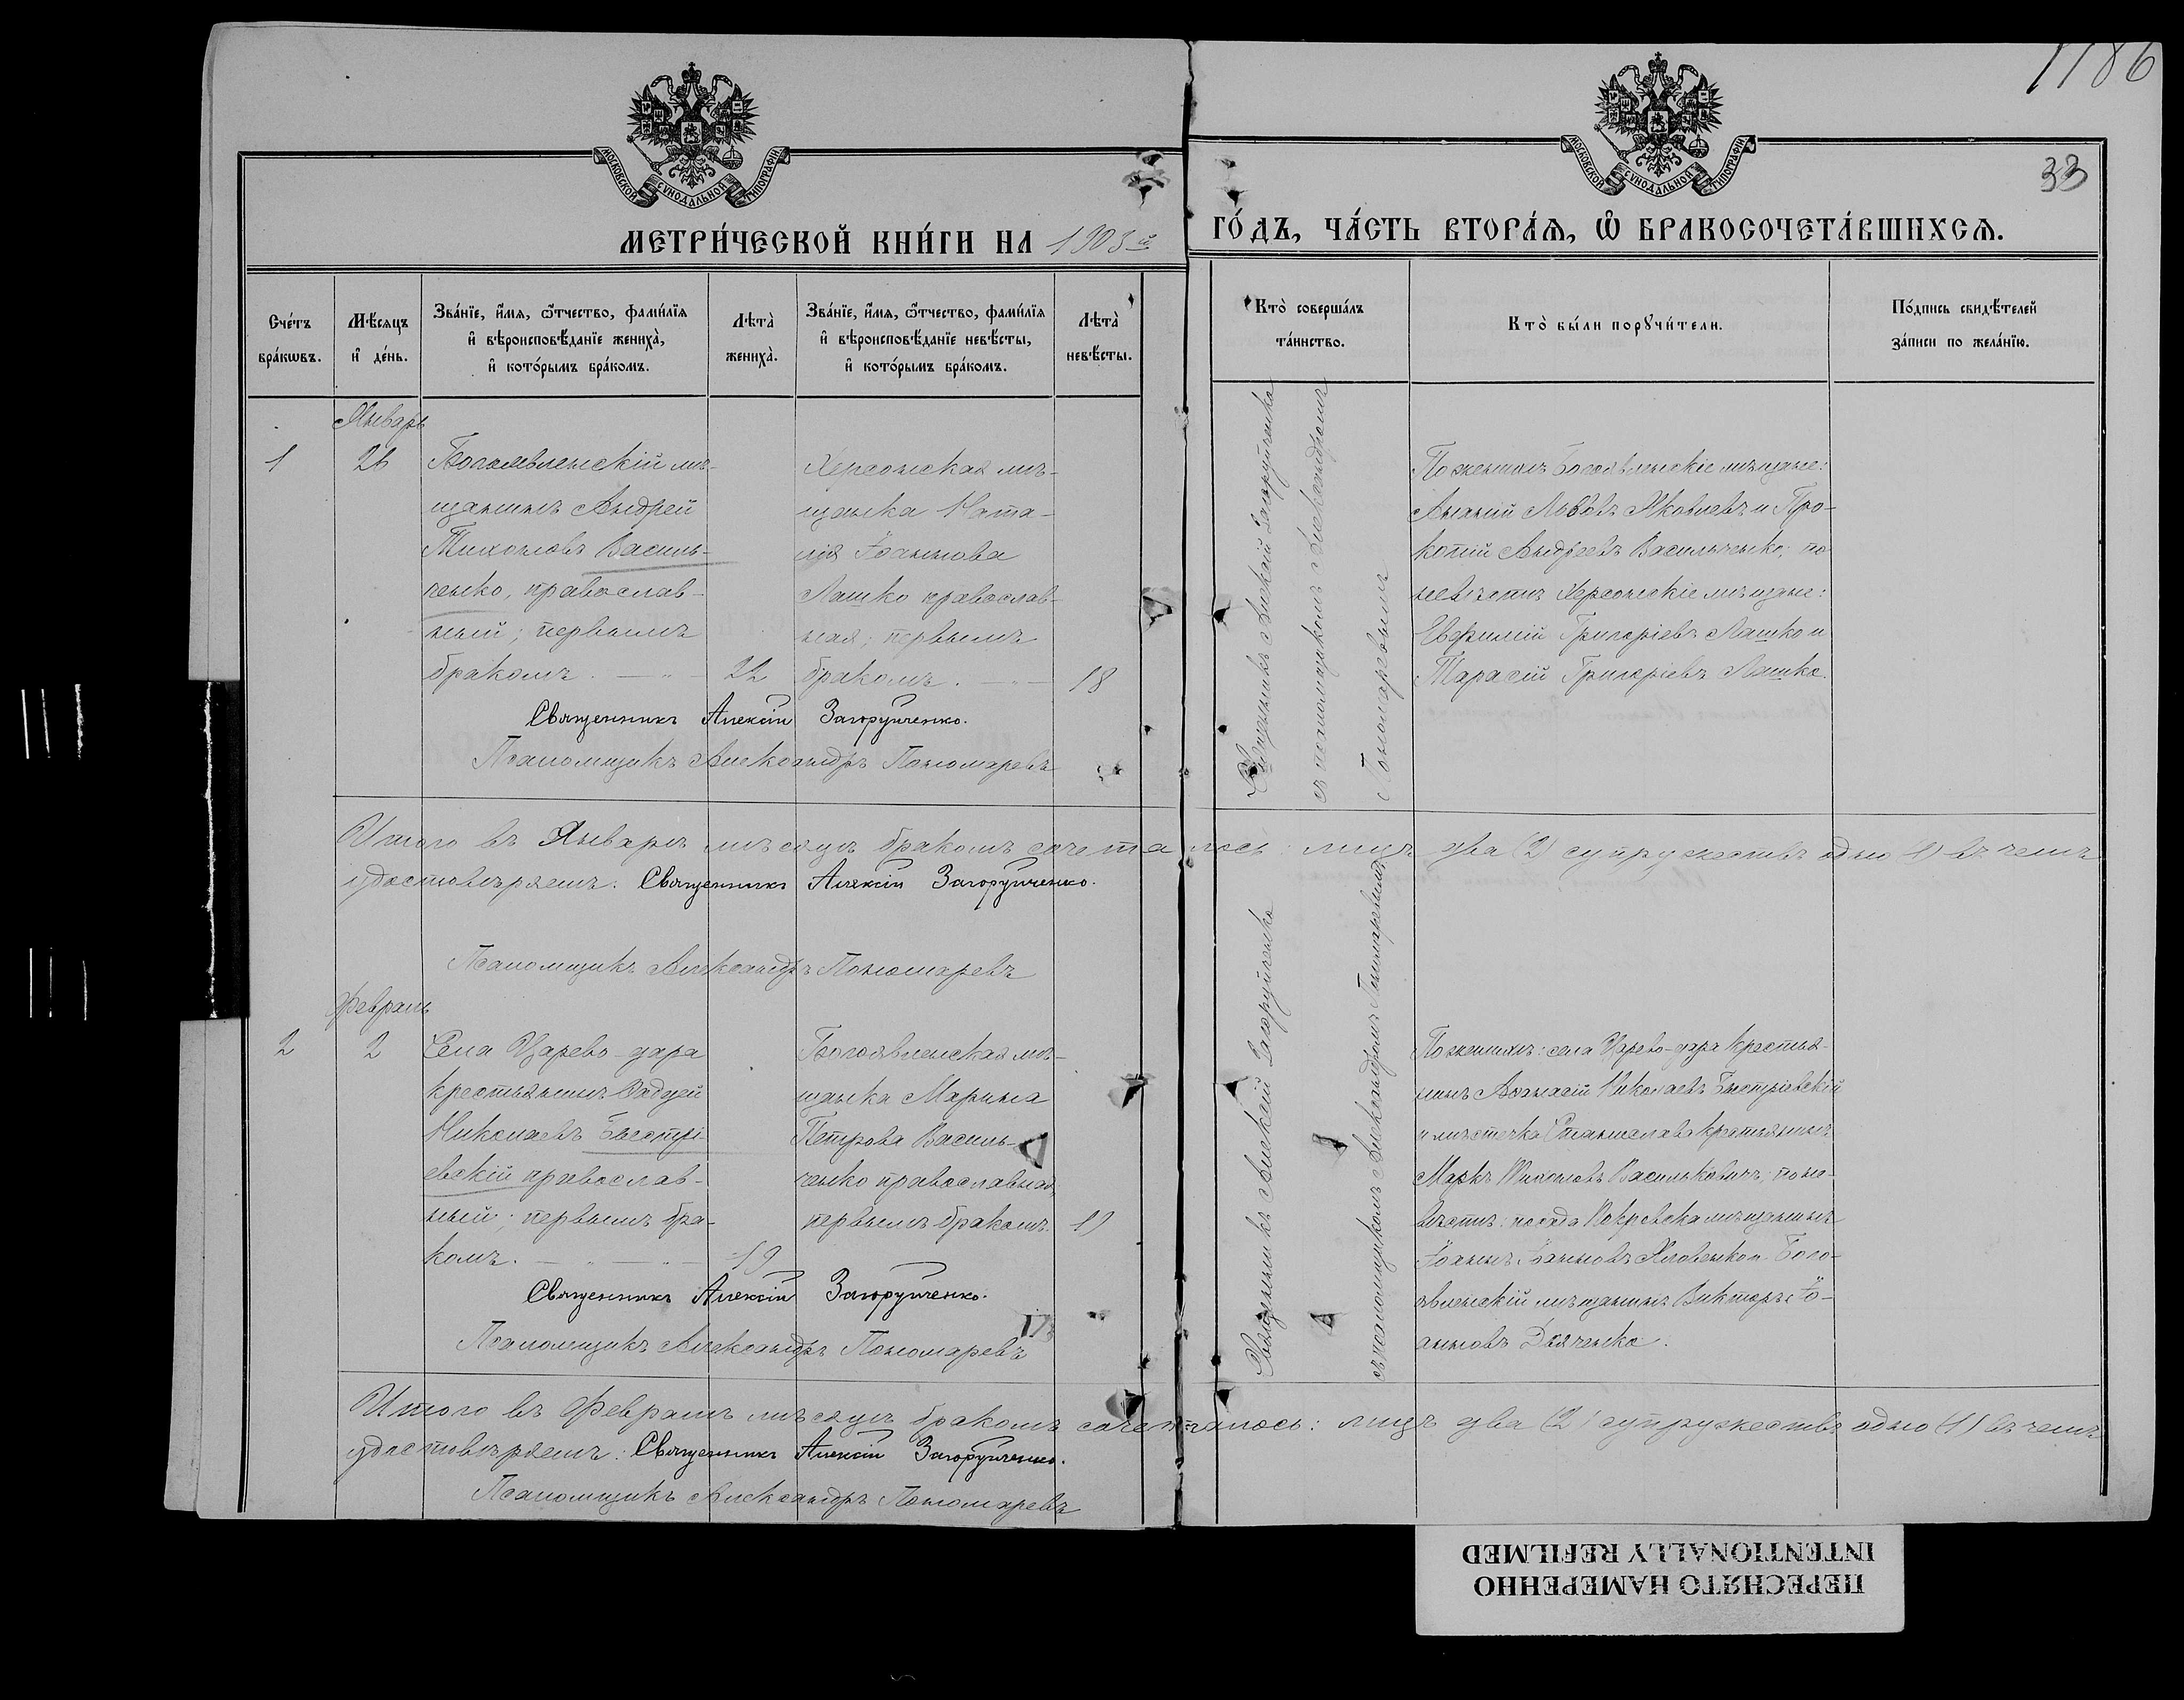 1186
33
МОСКОВСКОЙ СѴНОДАЛЬНОЙ ТИПОГРАФІИ
МОСКОВСКОЙ СѴНОДАЛЬНОЙ ТИПОГРАФІИ
МЕТРИ́ЧЕСКОЙ КНИ́ГИ НА 1905й ГО́ДЪ, ЧА́СТЬ ВТОРА́Ѧ, Ѽ БРАКОСОЧЕТА́ВШИХСѦ.
Сче́тъ бра́кѡвъ.
Мѣ́сяцъ и҆ де́нь.
Зва́нїе, и҆́мѧ, ѻ҆́тчество, фами́лїѧ и҆ вѣроисповѣ́данїе жениха̀, и҆ кото́рымъ бра́комъ.
Лѣта̀ жениха̀.
Зва́нїе, и҆́мѧ, ѻ҆́тчество, фами́лїѧ и҆ вѣроисповѣ́данїе невѣ́сты, и҆ кото́рымъ бра́комъ.
Лѣта̀ невѣ́сты.
Кто̀ соверша́лъ та́инство.
Кто̀ бы́ли порꙋчи́тели.
По́дпись свидѣ́телей за́писи по жела́нїю.
Январь
1
26
Богоявленскій мѣ-
щанинъ Андрей
Тихоновъ Василь-
ченко, православ-
ный; первымъ
бракомъ.
22
Херсонская мѣ-
щанка Ната-
лія Іоаннова
Лашко православ-
ная; первымъ
бракомъ.
18
Священникъ Алексій Загоруйченко
съ псаломщикомъ Александромъ
Пономаревымъ
По женихѣ Богоявленскіе мѣщане:
Яковлевъ и Про-
копій Андреевъ Васильченко; по
невѣстѣ Херсонскіе мѣщане:
Евфимій Григоріевъ Лашко и
Тарасій Григоріевъ Лашко.
Священникъ Алексій Загоруйченко.
Псаломщикъ Александръ Пономаревъ
Итого въ Январѣ мѣсяцѣ бракомъ сочеталось: лицъ два (2) супружествъ одно (1) въ чемъ
удостовѣряемъ: Священникъ Алексій Загоруйченко.
Псаломщикъ Александръ Пономаревъ
Февраль
2
2
Села Царево-дара
крестьянинъ Фаддей
Николаевъ Быстрі-
евскій православ-
ный; первымъ бра-
комъ.
19
Богоявленская мѣ-
щанка Марина
Петрова Василь-
ченко православная,
первымъ бракомъ.
Священникъ Алексій Загоруйченко
съ псаломщикомъ Александромъ Пономаревымъ
По женихѣ: села Царево-дара крестья-
нинъ Аѳанасій Николаевъ Быстріевскій
и мѣстечка Станислава крестьянинъ
Маркъ Васильковичъ; по не-
вѣстѣ: посада Покровска мѣщанинъ
Іоаннъ Іоанновъ и Бого-
явленскій мѣщанинъ Викторъ Іо-
анновъ Дяченко.
Священникъ Алексій Загоруйченко.
Псаломщикъ Александръ Пономаревъ
Итого въ Февралѣ мѣсяцѣ бракомъ сочеталось: лицъ два (2) супружествъ одно (1) въ чемъ
удостовѣряемъ: Священникъ Алексій Загоруйченко.
Псаломщикъ Александръ Пономаревъ
ПЕРЕСНЯТО НАМЕРЕННО
INTENTIONALLY REFILMED